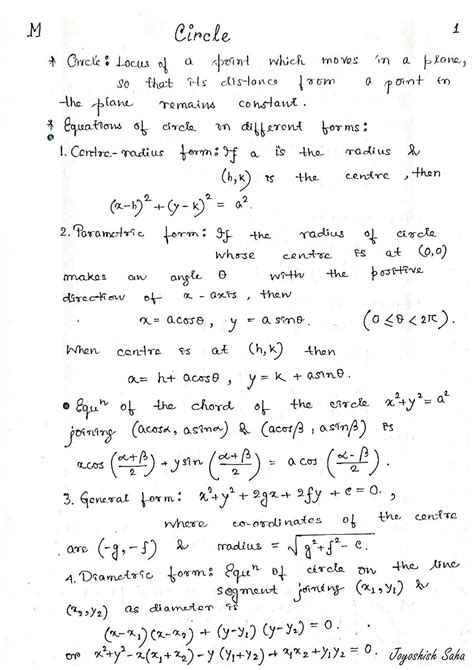 M Circle 1
* Circle: Locus of a point which moves in a plane,
so that its distance from a point in
the plane remains constant.
* Equations of circle in different forms:
1. Centre-radius form: If a is the radius &
(h,k) is the centre, then
(x-h)² + (y-k)² = a².
2. Parametric form: If the radius of circle
whose centre is at (0,0)
makes an angle θ with the positive
direction of x-axis, then
x = a cosθ, y = a sinθ. (0 ≤ θ < 2π).
When centre is at (h,k) then
x = h + a cosθ, y = k + a sinθ.
• Equⁿ of the chord of the circle x²+y² = a²
joining (a cosα, a sinα) & (a cosβ, a sinβ) is
x cos((α+β)/2) + y sin((α+β)/2) = a cos((α-β)/2).
3. General form: x²+y²+2gx+2fy+c = 0.,
where co-ordinates of the centre
are (-g,-f) & radius = √(g²+f²-c).
4. Diametric form: Equⁿ of circle on the line
segment joining (x₁,y₁) &
(x₂,y₂) as diameter is
(x-x₁)(x-x₂) + (y-y₁)(y-y₂) = 0.
or x²+y²-x(x₁+x₂)-y(y₁+y₂)+x₁x₂+y₁y₂ = 0
Joyoshish Saha